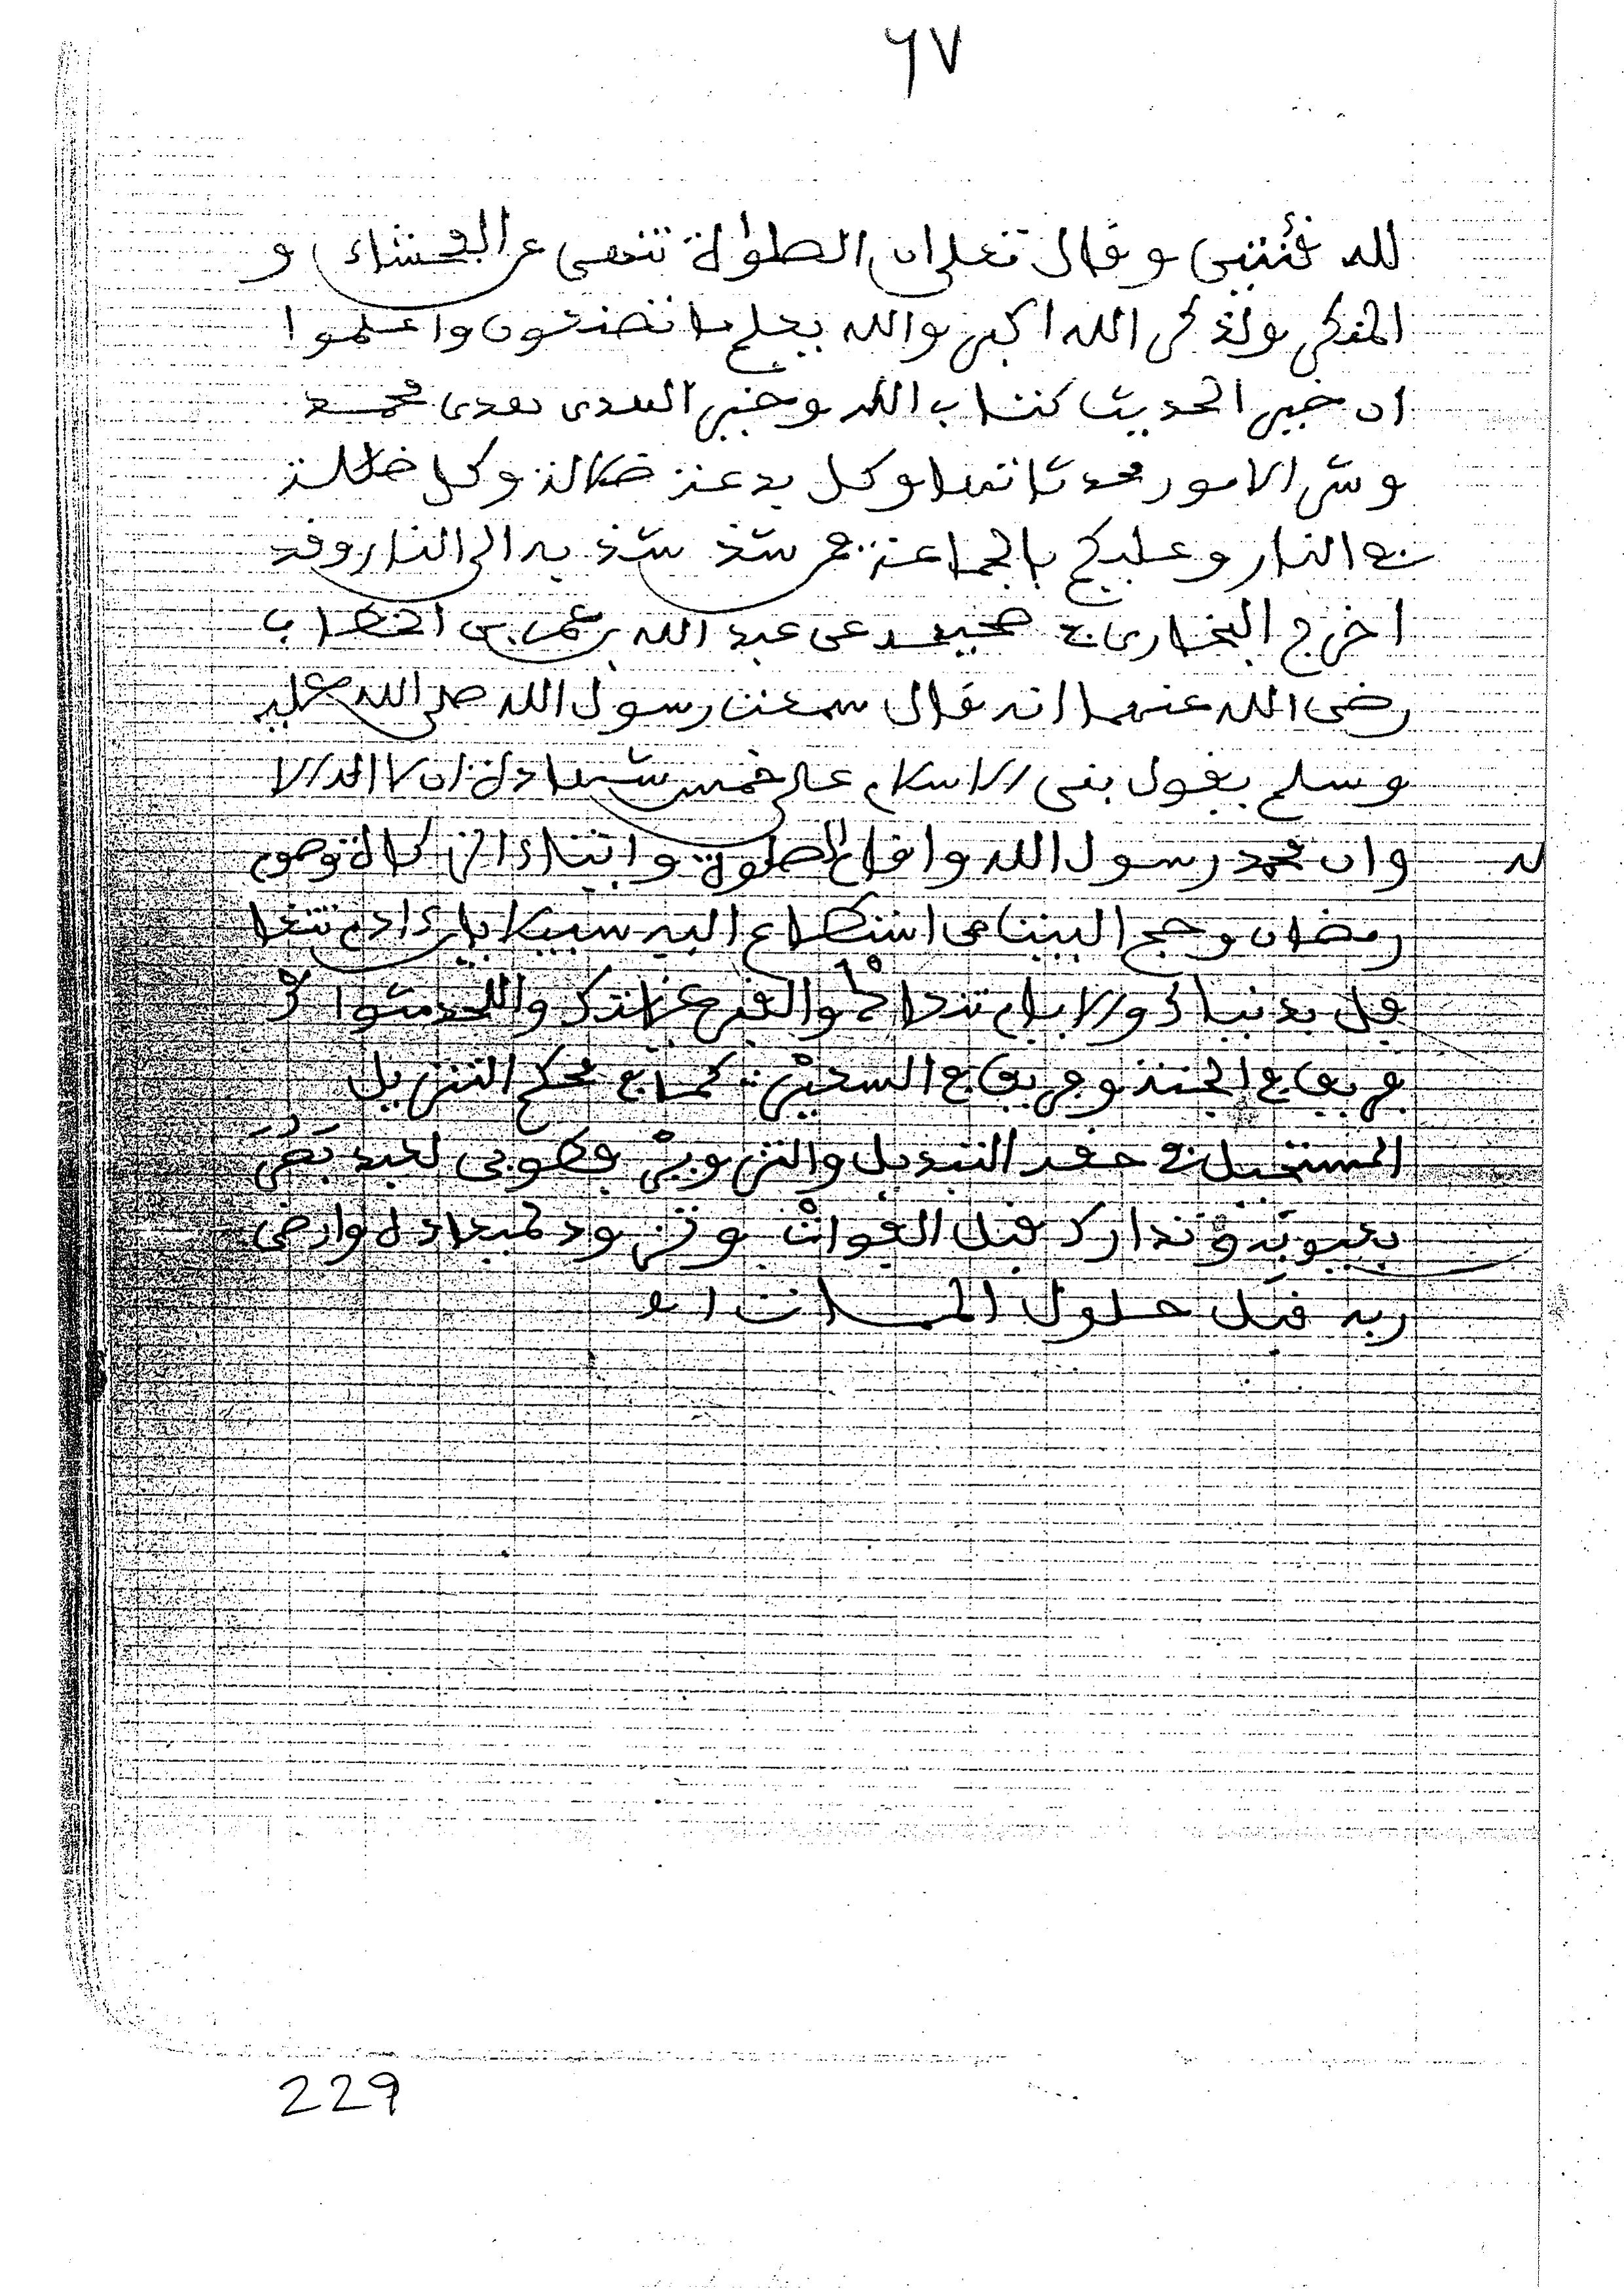 ٦٧
لله قنتين وقال تعلى ان الصلوة تنهى عن الفحشاء و
المنكر ولذكر الله اكبر والله يعلم ما تصنعون واعلموا
ان خير الحديث كتاب الله وخير الهدى هدى محمد
وشر الامور محدثاتها وكل بدعة ضلالة وكل ضلالة
في النار وعليكم بالجماعة فمن شذ شذ به الى النار وقد
اخرج البخارى في صحيحه عن عبد الله بن عمر بن الخطاب
رضى الله عنهما انه قال سمعت رسول الله صلى الله عليه
وسلم يقول بنى الاسلام على خمس شهادة ان لا اله الا
لله وان محمد رسول الله واقام الصلوة وايتاء الزكاة وصوم
رمضان وحج البيت من استطاع اليه سبيلا يا ابن ءادم
بدنياك والايام والقبر
فريق في الجنة وفريق في السعير كما في محكم التنزيل
المستحيل في حقه التبديل والتزوير فطوبى لعبد
بعيوبه وتدارك قبل الفوات وتزود لميعاده وارضى
ربه قبل حلول الممات اه
229